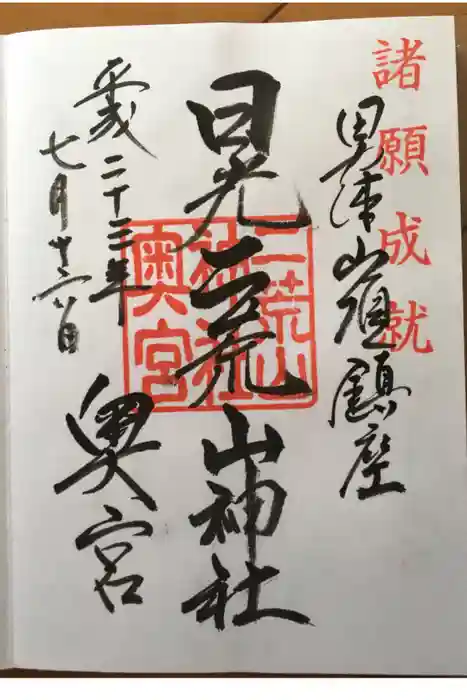 諸願成就
男体山頂鎮座
日光二荒山神社
二荒山
神社
奥宮
平成二十三年
七月廿六日
奥宮